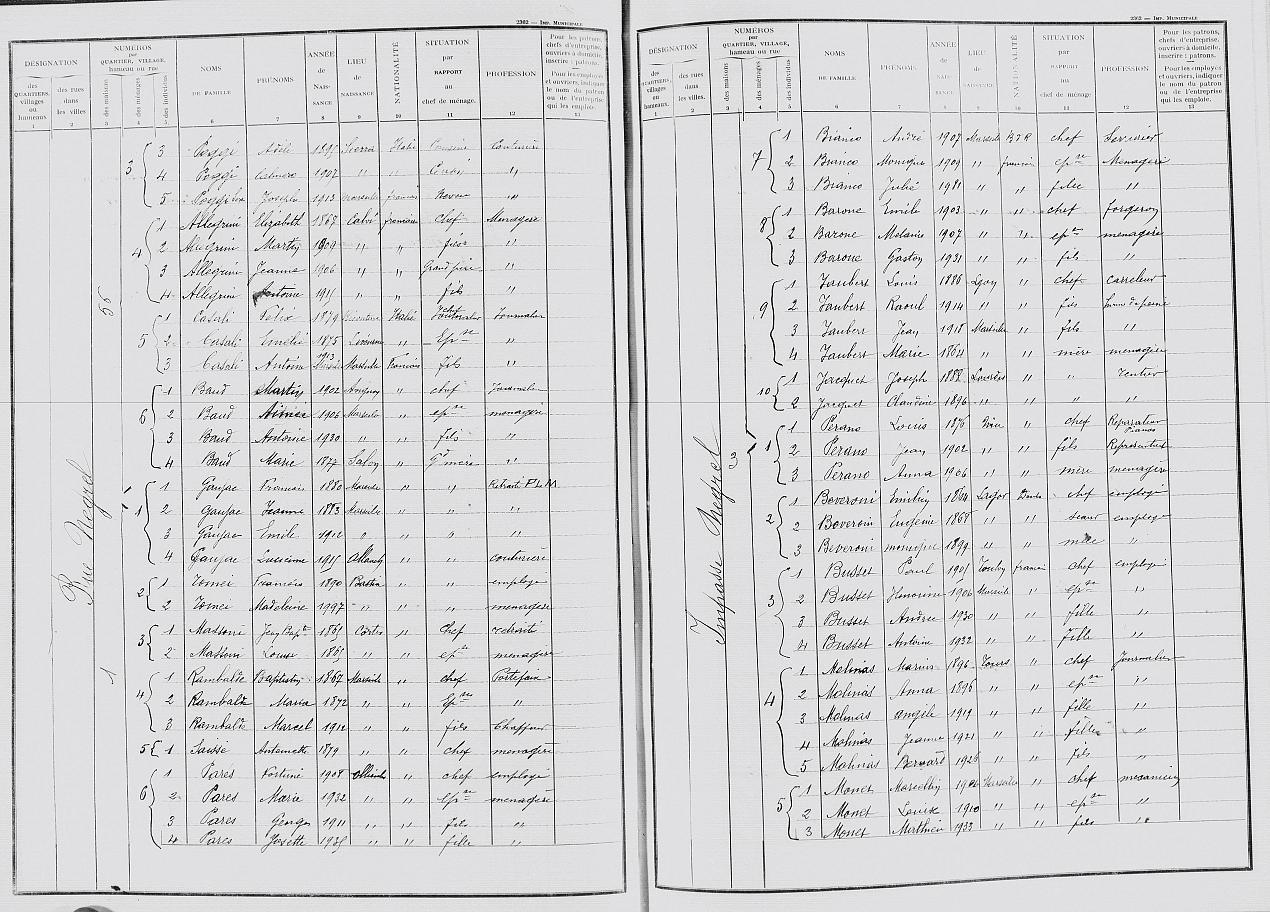 2362 — Imp. Municipale
DÉSIGNATION
des QUARTIERS, villages ou hameaux
des rues dans les villes
NUMÉROS par QUARTIER, VILLAGE, hameau ou rue
des maisons
des ménages
des individus
NOMS DE FAMILLE
PRÉNOMS
ANNÉE de NAISSANCE
LIEU de NAISSANCE
NATIONALITÉ
SITUATION par RAPPORT au chef de ménage.
PROFESSION
Pour les patrons, chefs d'entreprise, ouvriers à domicile, inscrire : patrons.
Pour les employés et ouvriers, indiquer le nom du patron ou de l'entreprise qui les emploie.
1 2 3 4 5 6 7 8 9 10 11 12 13
Rue Negrel
3 3 Poggi Adele Italie
4 Poggi 1907 " "
5 Joseph 1913 Marseille français Neveu "
4 1 Allegrini Elizabeth 1867 Calvi française chef Menagere
2 Allegrini 1904 " " "
3 Allegrini Jeanne 1906 " " "
4 Allegrini Antoine 1915 " " fils "
5 1 Casali Felix 1879 Italie chef Journalier
2 Casali Emélie 1875 " Epse "
3 Casali Antoine 1913 Marseille Français fils "
6 1 Baud Martin 1902 " chef Journalier
2 Baud Aimée 1906 Marseille " epse menagère
3 Baud Antoine 1930 " " fils "
4 Baud Marie 1877 Salon " Gd mère "
1 1 Gaujac Francois 1880 Marseille " " Retraité P L M
2 Gaujac Jeanne 1883 Marseille " " "
3 Gaujac Emile 1912 " " " "
4 Gaujac Lucienne 1915 Allauch " " couturière
2 1 Tomei Francois 1890 Bastia " " employé
2 Tomei Madeleine 1997 " " " menagère
3 1 Massoni Jean Bapte 1865 Corse " Chef retraité
2 Massoni Louise 1865 " " epse menagère
4 1 Rambaldi Baptistin 1867 Marseille " chef Portefaix
2 Rambaldi Maria 1872 " " Epse "
3 Rambaldi Marcel 1912 " " fils Chauffeur
5 1 Sasse Antoinette 1879 " " chef menagère
6 1 Pares Fortuné 1908 " chef employé
2 Pares Marie 1932 " " epse menagère
3 Pares Georges 1911 " " fils "
4 Pares Josette 1935 " " fille "
2362 — Imp. Municipale
DÉSIGNATION
des QUARTIERS, villages ou hameaux.
des rues dans les villes.
NUMÉROS par QUARTIER, VILLAGE, hameau ou rue
des maisons
des ménages
des individus
NOMS DE FAMILLE
PRÉNOMS
ANNÉE de NAISSANCE
LIEU de NAISSANCE
NATIONALITÉ
SITUATION par RAPPORT au chef de ménage.
PROFESSION
Pour les patrons, chefs d'entreprise, ouvriers à domicile, inscrire : patrons.
Pour les employés et ouvriers, indiquer le nom du patron ou de l'entreprise qui les emploie.
1 2 3 4 5 6 7 8 9 10 11 12 13
Impasse Negrel
7 1 Bianco André 1907 Marseille B D R chef Serrurier
2 Bianco Monique 1909 " francais epse Menagere
3 Bianco Julie 1931 " " fille "
8 1 Barone Emile 1903 " " chef forgeron
2 Barone Melanie 1907 " " epse menagère
3 Barone Gaston 1931 " " fils "
9 1 Jaubert Louis 1886 Lyon " chef carreleur
2 Jaubert Raoul 1914 " " fils
3 Jaubert Jean 1918 Marseille " fils "
4 Jaubert Marie 1864 " " mère menagère
10 1 Jacquet Joseph 1888 Lourdes " " rentier
2 Jacquet Claudine 1896 " " " "
3 1 1 Perano Louis 1876 " chef Réparation Pianos
2 Perano Jean 1902 " " fils Représentant
3 Perano Anna 1906 " " mère menagere
2 1 Boveroni Emilien 1864 chef employé
2 Boveroni Eugénie 1868 " " employé
3 Boveroni monique 1899 " " mère "
3 1 Busset Paul 1905 Toulon francais chef employé
2 Busset Honorine 1906 Marseille " epse "
3 Busset Andree 1930 " " fille "
4 Busset Antoine 1932 " " fille "
4 1 Molinas Marius 1896 Tours " chef Journalier
2 Molinas Anna 1896 " " epse "
3 Molinas Angèle 1919 " " fille "
4 Molinas Jeanne 1921 " " fille "
5 Molinas Bernard 1926 " " fils "
5 1 Monet Marcellin 1906 Marseille " chef mecanicien
2 Monet Louise 1910 " " epse "
3 Monet Mathieu 1933 " " fils "